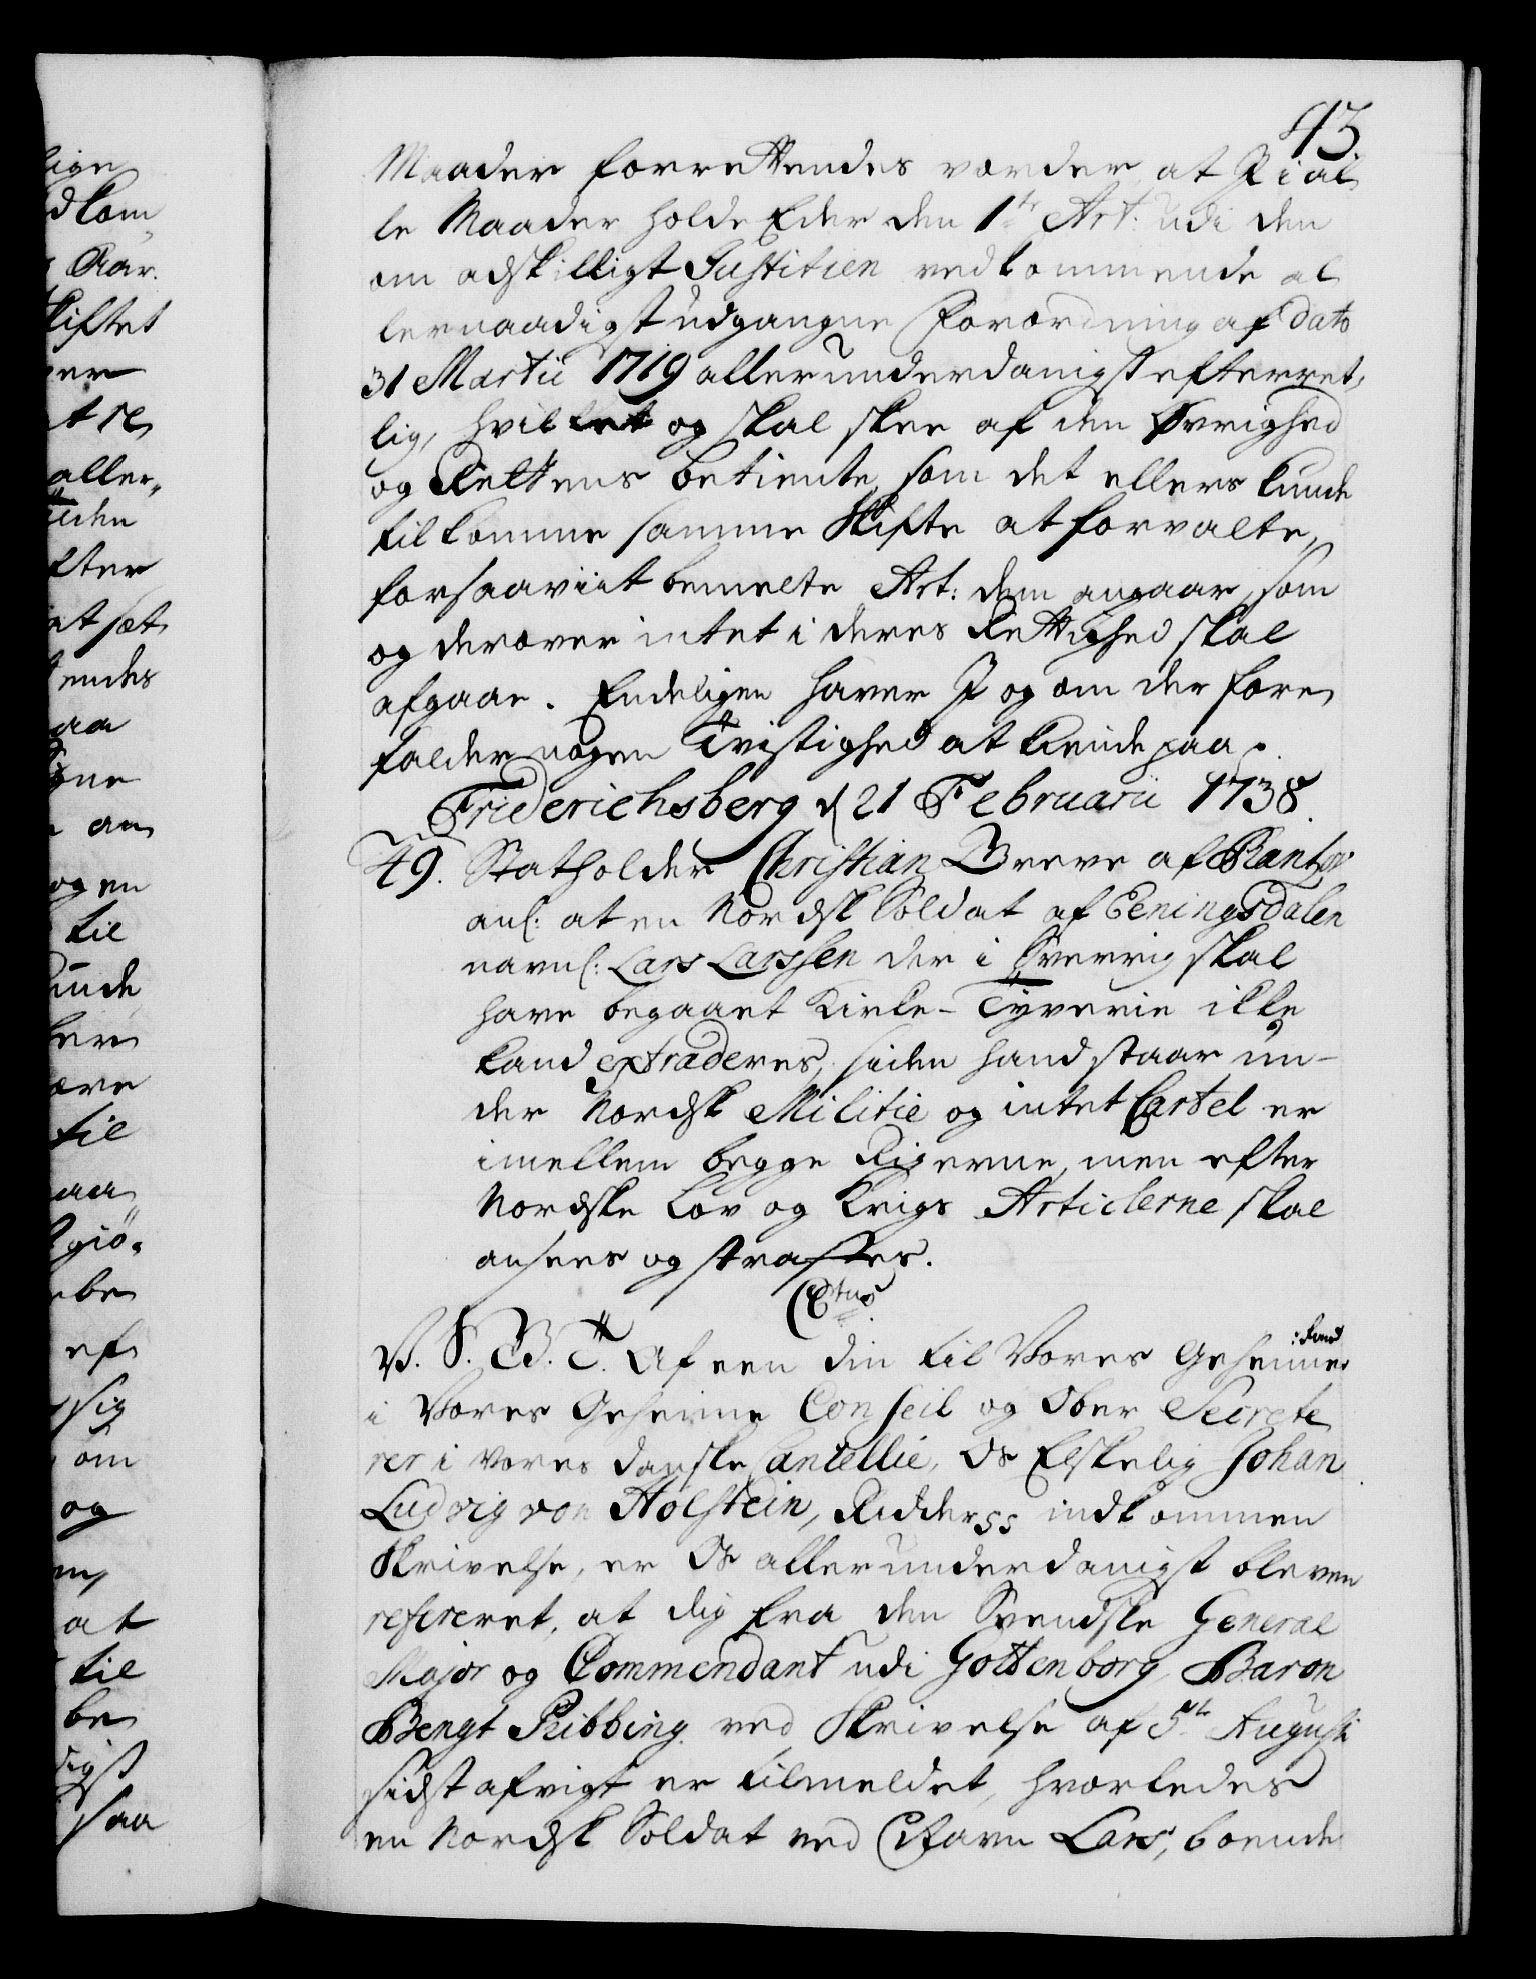 43
Maader forrettendes vorder, at I i al,
le Maader holde Eder den 1.te Art: udi den
om adskilligt Justitien vedkommende al
lernaadigst udgangne Forordning af dato
31 Martii 1719 allerunderdanigst efterret,
lig, hvilket og skal skee af den Øvrighed
og Rettens betiente, som det ellers kunde
tilkomme samme Skifte at forvalte,
forsaaviit bemelte Art: dem angaar, som
og derover intet i deres Rettighed skal
afgaae. Endeligen haver I og om der fore,
falder nogen Tvistighed at kiende paa.
Friderichsberg d 21 Februarii 1738.
49. Statholder Christian Greve af Rantzow
anl: at en Nordsk Soldat af Eeningsdalen
navnl: Lars Larssen der i Sverrig skal
have begaaet Kirke-Tyverie ikke
kand extraderes, siden hand staar un-
der Nordsk Militie og intet Cartel er
imellem begge Rigerne, men efter
Nordske Lov og Krigs Articlerne skal
ansees og straffes.
C6tus.
V. S. G. T. Af een din til Vores Geheime
i Vores Geheime Conseil og Ober Secrete
rer i Vores danske Cancellie, Os Elskelig Johan
Ludvig von Holstein, Ridder ss indkommen
Skrivelse, er Os allerunderdanigst bleven
refereret, at dig fra den Svendske General
Major og Commendant udi Gottenborg, Baron
Bengt Ribbing ved Skrivelse af 5te Augusti
sidst afvigt er tilmeldet, hvorledes
en Nordsk Soldat ved Navn Lars, boende
lige
dkom
Aar.
kiftet
er
aller,
iden
fter
endes
aa
ne
an
og en
til
unde
til
aa
giö,
be
ef
sig
om
og
at
til
be
digst
saa